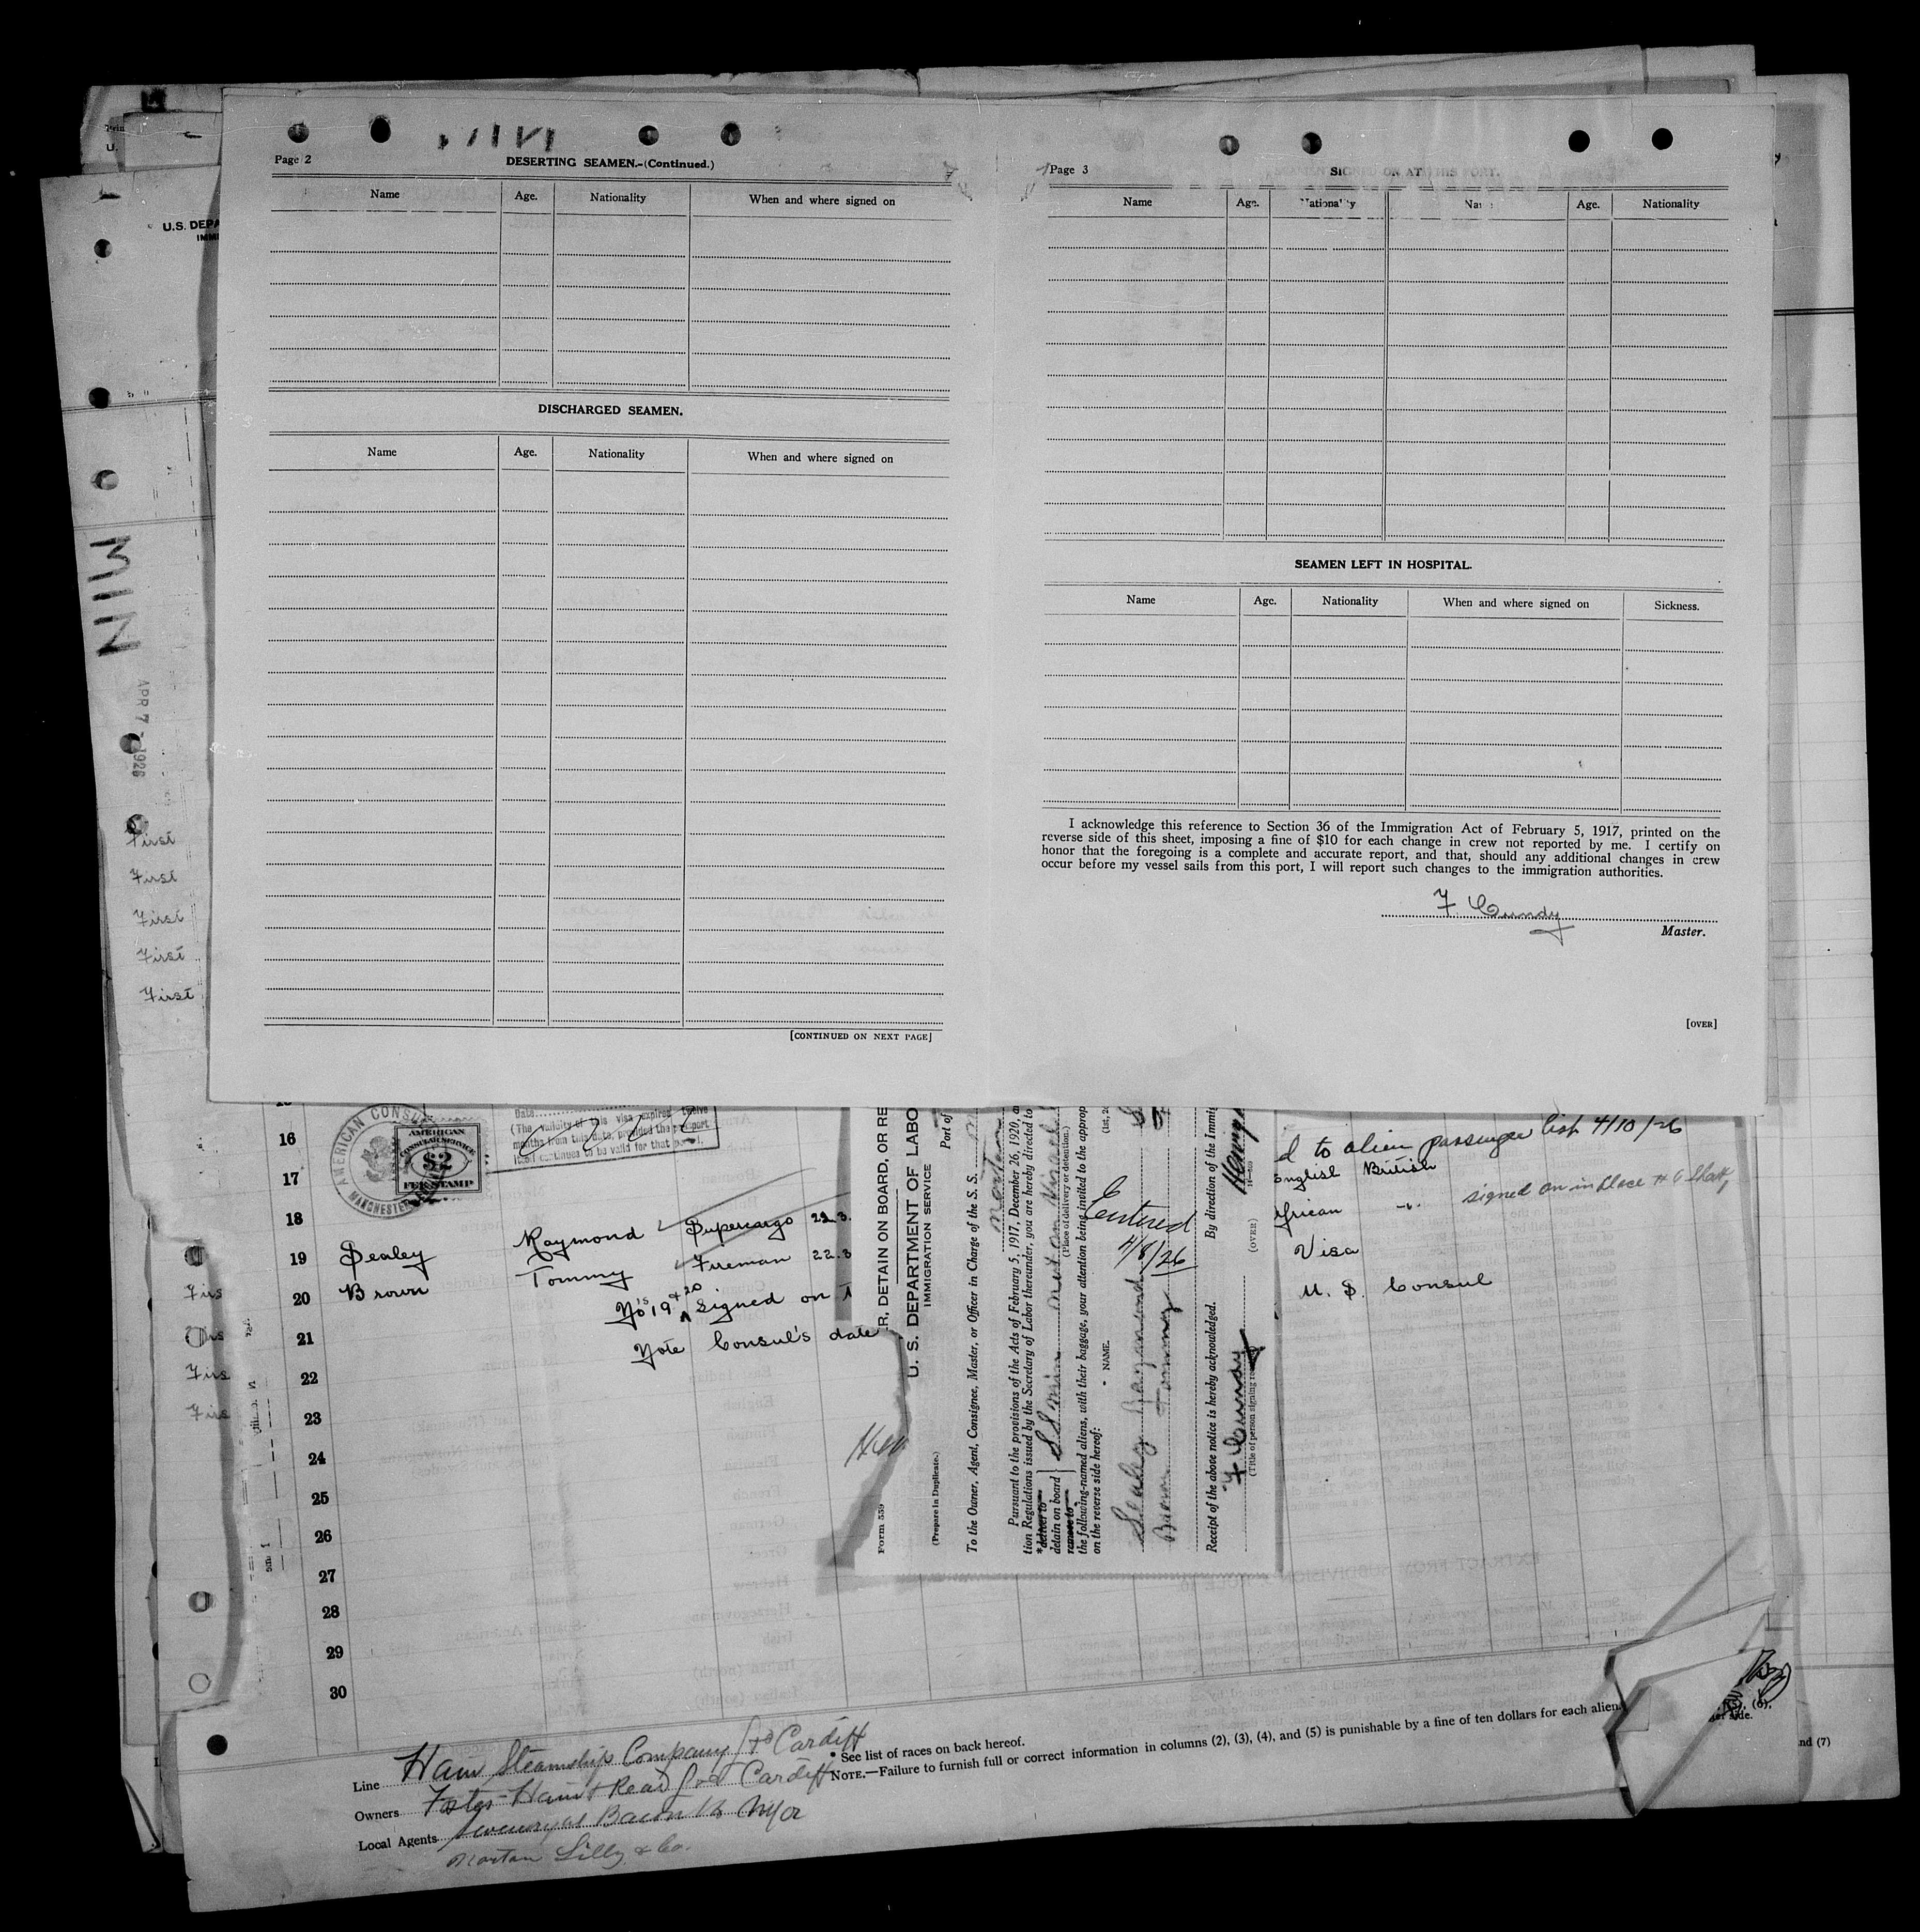 Page 2
DESERTING SEAMEN.-(Continued.)
Name Age. Nationality When and where signed on
DISCHARGED SEAMEN.
Name Age. Nationality When and where signed on
[CONTINUED ON NEXT PAGE]
Page 3
SIGNED ON AT THIS PORT.
Name Age. Nationality Name Age. Nationality
SEAMEN LEFT IN HOSPITAL.
Name Age. Nationality When and where signed on Sickness.
I acknowledge this reference to Section 36 of the Immigration Act of February 5, 1917, printed on the
reverse side of this sheet, imposing a fine of $10 for each change in crew not reported by me. I certify on
honor that the foregoing is a complete and accurate report, and that, should any additional changes in crew
occur before my vessel sails from this port, I will report such changes to the immigration authorities.
F Cundy
Master.
[OVER]
U.S. DEPA
IMMI
MIN
APR 7 1926
First
First
First
First
First
Firs
Firs
Firs
Firs
AMERICAN CONSU
MANCHESTER
AMERICAN
CONSULAR SERVICE
$2
FEE STAMP
Date
(The validity of this visa expires twelve
months from this date, provided the passport
itself continues to be valid for that period.
16
17
18
19 Sealey Raymond Supercargo 22.3.
20 Brown Tommy Fireman 22.3
No's 19 & 20 Signed on
21 Note Consul's date
22
23
24
25
26
27
28
29
30
R, DETAIN ON BOARD, OR RE
U. S. DEPARTMENT OF LABO
IMMIGRATION SERVICE
Port of
Form 559
(Prepare in Duplicate.)
To the Owner, Agent, Consignee, Master, or Officer in Charge of the S. S.
Pursuant to the provisions of the Acts of February 5, 1917, December 26, 1920, a
tion Regulations issued by the Secretary of Labor thereunder, you are hereby directed to
* deliver to
detain on board
remove to
(Place of delivery or detention.)
the following-named aliens, with their baggage, your attention being invited to the approp
on the reverse side hereof:
NAME.
Sealey Raymond
Brown Tommy
Entered
4/8/26
Receipt of the above notice is hereby acknowledged. By direction of the Immi
F Cundy
(Title of person signing
(OVER)
d to alien passenger list 4/10/26
English British
African
signed on in place # 6
Visa
U. S. Consul
Line Hain Steamship Company Ltd Cardiff
Owners Foster Hain & Read Ltd Cardiff
Local Agents
Norton Lilly & Co.
* See list of races on back hereof.
NOTE.—Failure to furnish full or correct information in columns (2), (3), (4), and (5) is punishable by a fine of ten dollars for each alien.
nd (7)